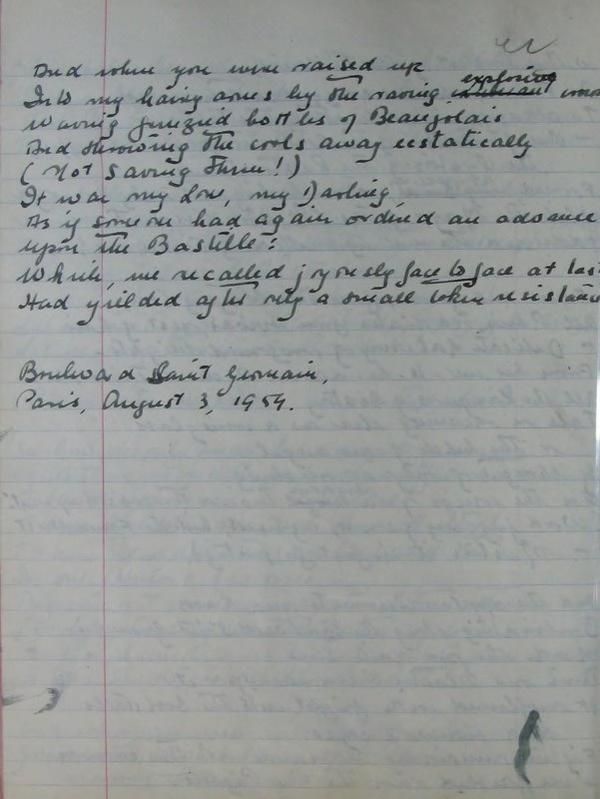 And when you were raised up
exploring
Into my hairy arms by the raving
Waving fringed bottles of Beaujolais
And throwing the corks away ecstatically
(Not saving them!)
It was my love, my Darling,
As if someone had again ordered an advance
upon the Bastille:
Which, we recalled joyously face to face at last
Had yielded after only a small token resistance
Boulevard Saint Germain,
Paris, August 3, 1959.